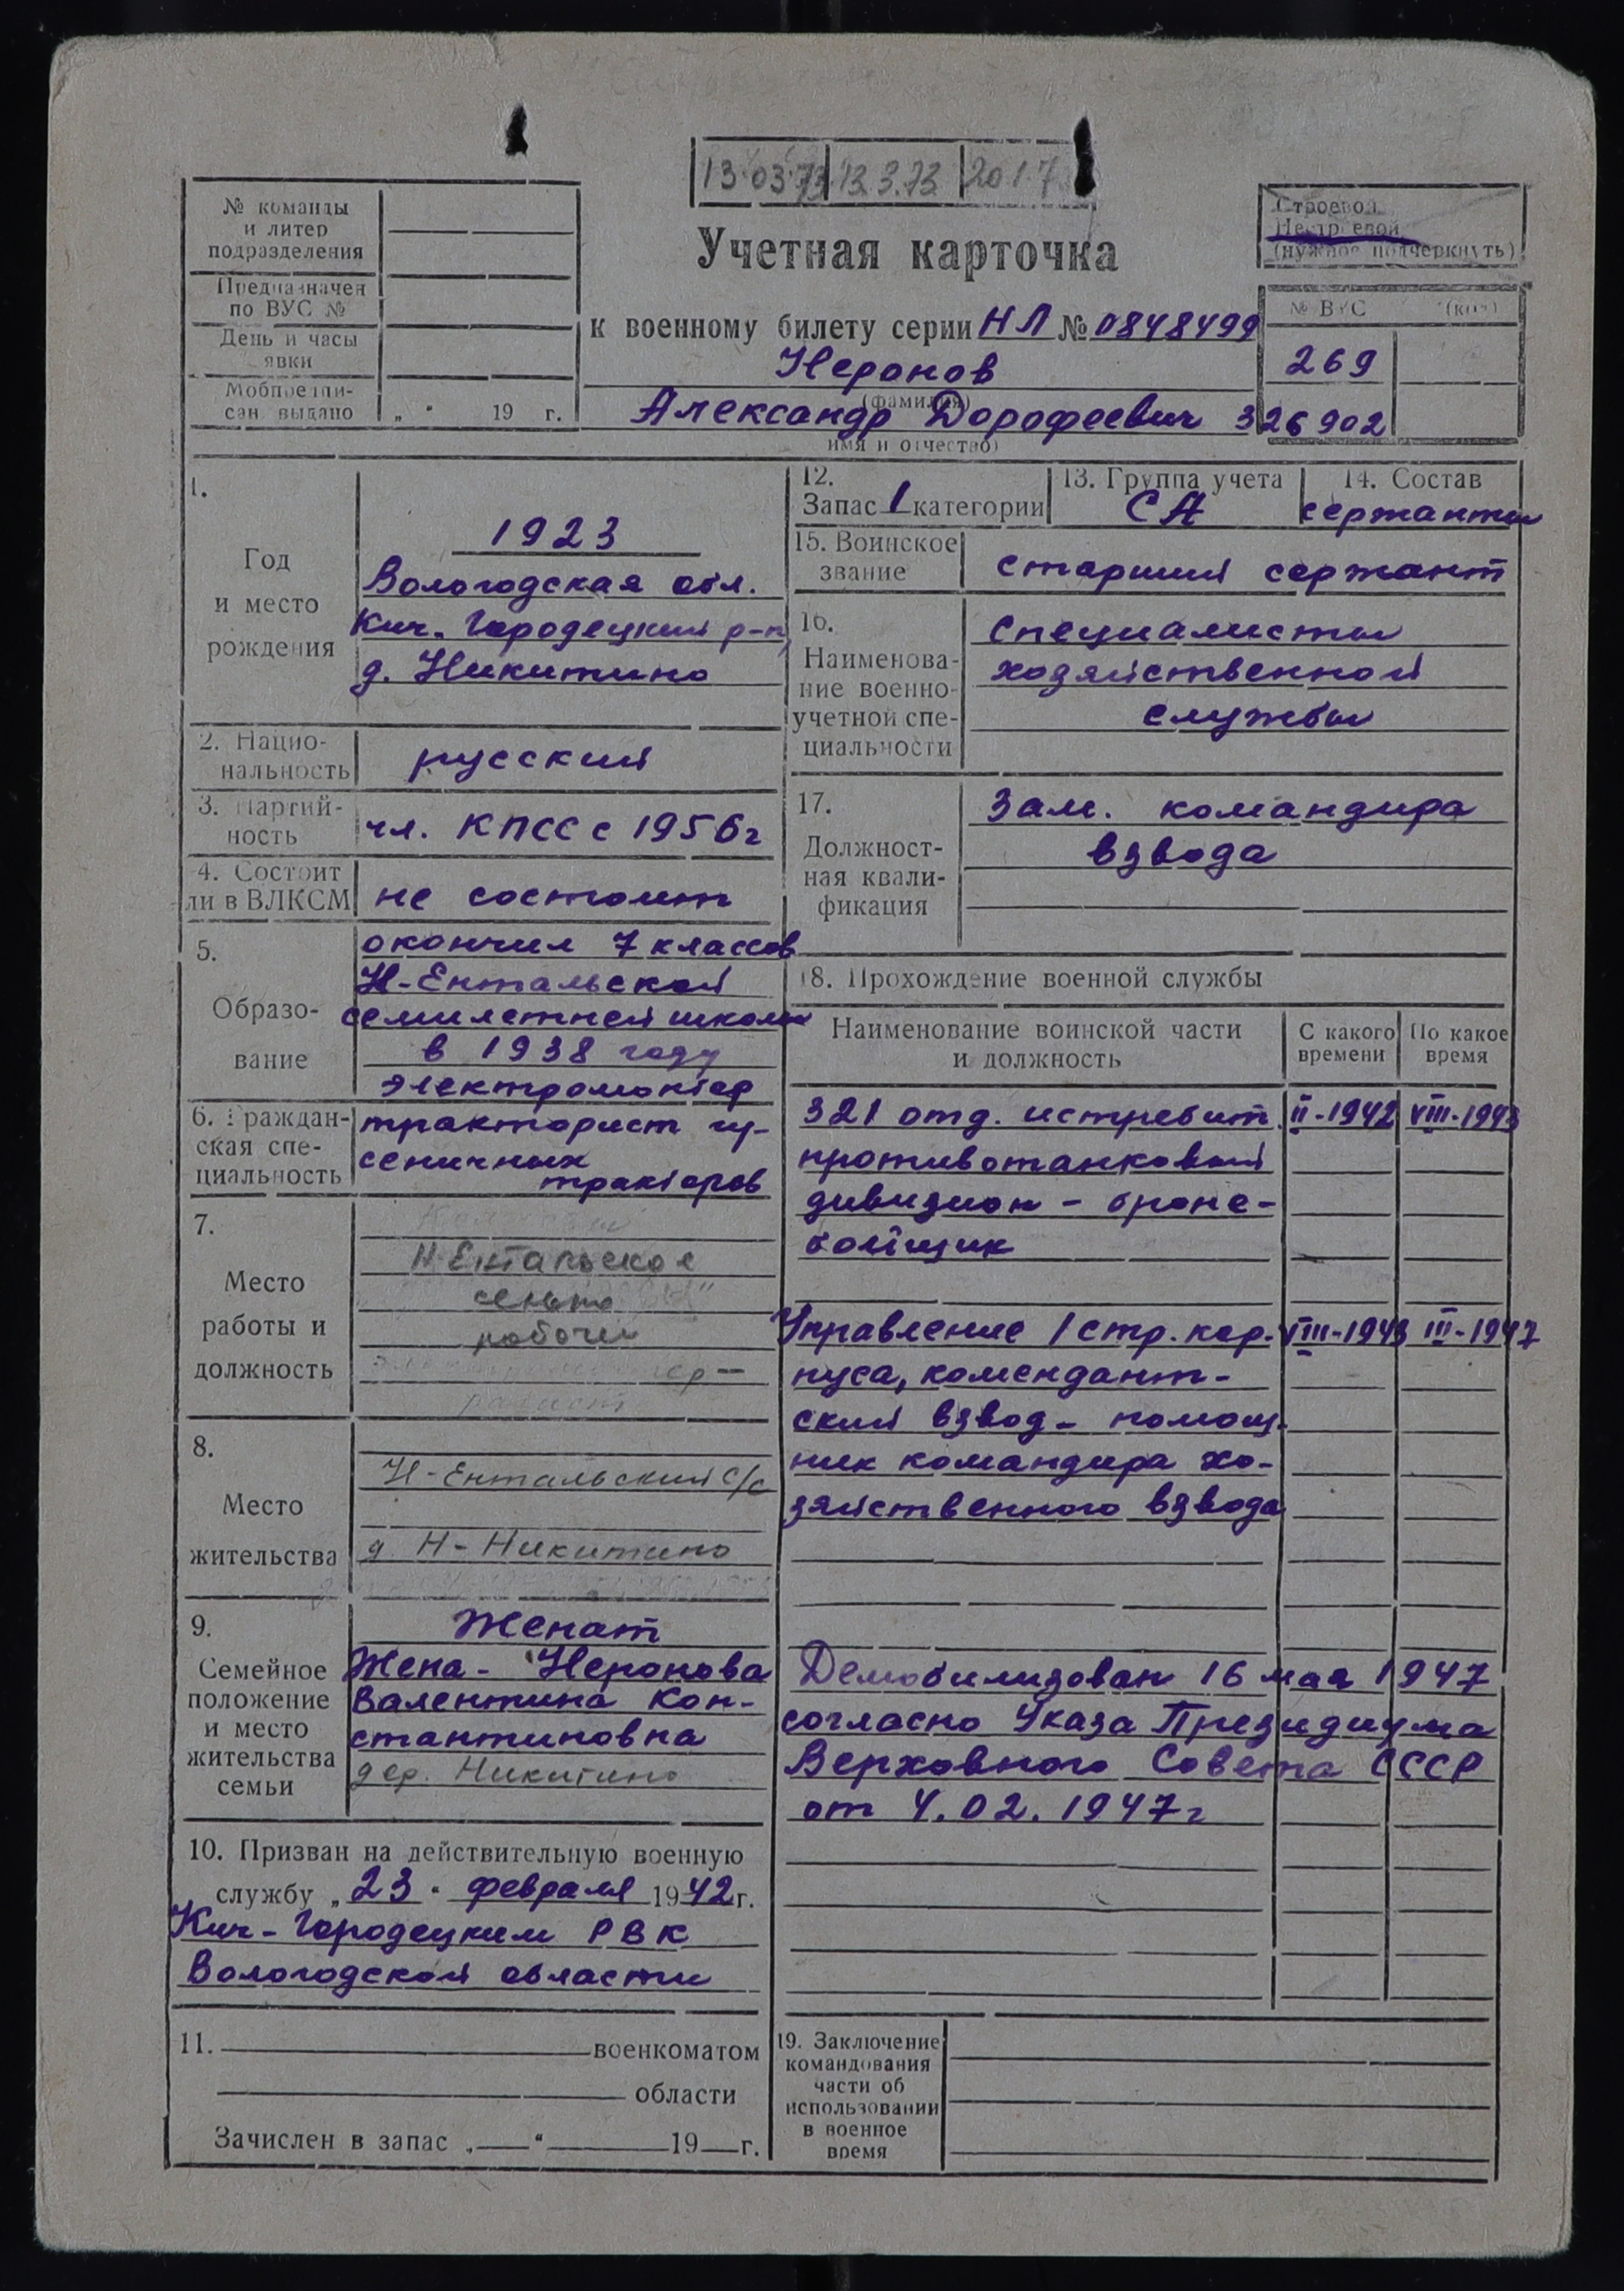 13.03.73 13.3.73 20.1.7
№ команды
и литер
подразделения
Предназначен
по ВУС №
День и часы
явки
Мобпредпи-
сан. выдано „ “ 19 г.
Учетная карточка
к военному билету серии НЛ № 0848499
Неронов
(фамилия)
Александр Дорофеевич
имя и отчество)
Строевой
Нестроевой
(нужное подчеркнуть)
№ ВУС (код)
269
326902
1.
Год
и место
рождения
1923
Вологодская обл.
Кич. Городецкий р-н,
д. Никитино
2. Нацио-
нальность
русский
3. Партий-
ность
чл. КПСС с 1956г
4. Состоит
ли в ВЛКСМ
не состоит
5.
Образо-
вание
окончил 7 классов
Н-Ентальской
семилетней школы
в 1938 году
6. Граждан-
ская спе-
циальность
электромонтер
тракторист гу-
сеничных
тракторов
7.
Место
работы и
должность
Н-Ентальское
сельпо
рабочий
8.
Место
жительства
Н-Ентальский с/с
д. Н-Никитино
9.
Семейное
положение
и место
жительства
семьи
Женат
Жена - Неронова
Валентина Кон-
стантиновна
дер. Никитино
10. Призван на действительную военную
службу „ 23 “ февраля 1942 г.
Кич-Городецким РВК
Вологодской области
11. военкоматом
области
Зачислен в запас „ “ 19 г.
12.
Запас 1 категории
13. Группа учета
СА
14. Состав
сержанты
15. Воинское
звание
старший сержант
16.
Наименова-
ние военно-
учетной спе-
циальности
Специалисты
хозяйственной
службы
17.
Должност-
ная квали-
фикация
Зам. командира
взвода
18. Прохождение военной службы
Наименование воинской части
и должность
С какого
времени
По какое
время
321 отд. истребит. II-1942 VIII-1943
противотанковый
дивизион - броне-
бойщик
Управление 1 стр. кор- VIII-1943 III-1947
пуса, комендант-
ский взвод - помощ-
ник командира хо-
зяйственного взвода
Демобилизован 16 мая 1947
согласно Указа Президиума
Верховного Совета СССР
от 4.02.1947г
19. Заключение
командования
части об
использовании
в военное
время